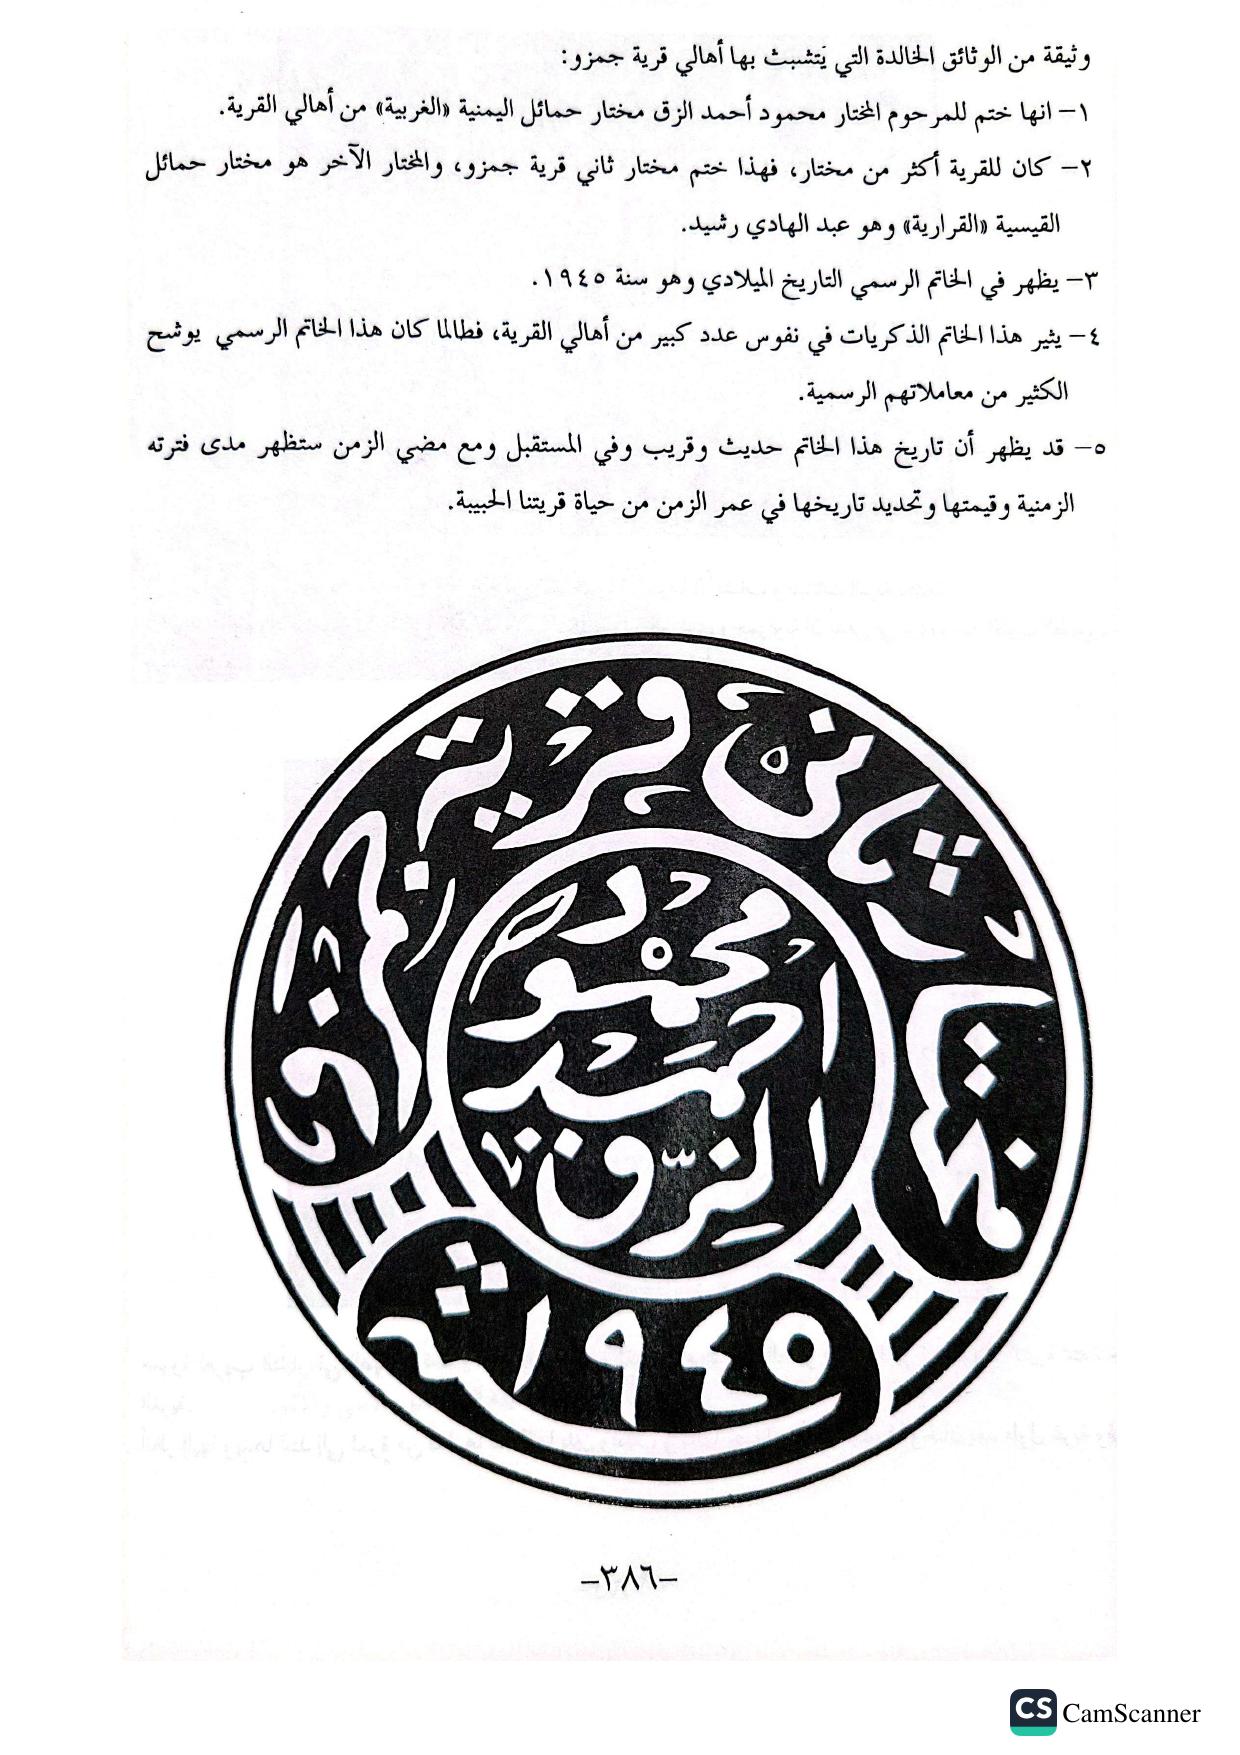 وثيقة من الوثائق الخالدة التي يَتشبث بها أهالي قرية جمزو:
١– انها ختم للمرحوم المختار محمود أحمد الزق مختار حمائل اليمنية «الغربية» من أهالي القرية.
٢– كان للقرية أكثر من مختار، فهذا ختم مختار ثاني قرية جمزو، والمختار الآخر هو مختار حمائل
القيسية «القرارية» وهو عبد الهادي رشيد.
٣– يظهر في الخاتم الرسمي التاريخ الميلادي وهو سنة ١٩٤٥.
٤– يثير هذا الخاتم الذكريات في نفوس عدد كبير من أهالي القرية، فطالما كان هذا الخاتم الرسمي يوشح
الكثير من معاملاتهم الرسمية.
٥– قد يظهر أن تاريخ هذا الخاتم حديث وقريب وفي المستقبل ومع مضي الزمن ستظهر مدى فترته
الزمنية وقيمتها وتحديد تاريخها في عمر الزمن من حياة قريتنا الحبيبة.
مختار ثاني قرية جمزو
محمود
احمد
الزق
سنة ١٩٤٥
–٣٨٦–
CS CamScanner